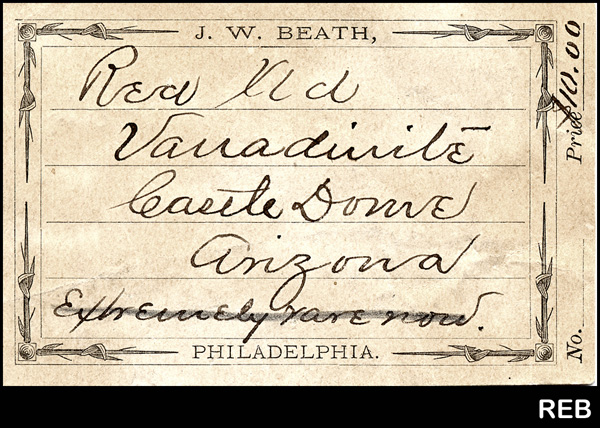 J. W. BEATH,
Red Xld
Vanadinite
Castle Dome
Arizona
Extremely rare now.
PHILADELPHIA.
Price $10.00
No.
REB